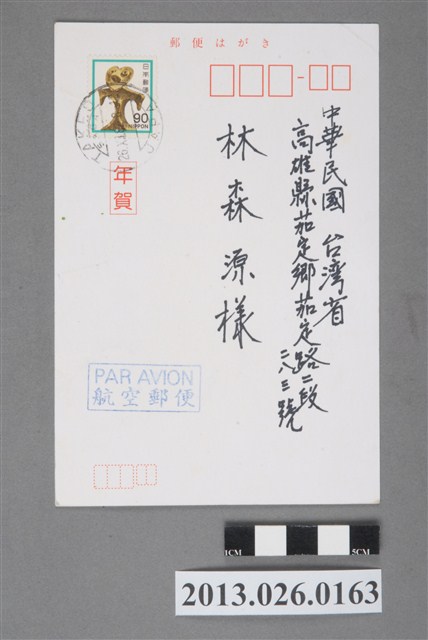 郵便はがき
日本郵便
90
NIPPON
年賀
中華民國 台湾省
高雄縣茄定鄉茄定路二段
二八三號
林森源様
PAR AVION
航空郵便
1CM
5CM
2013.026.0163